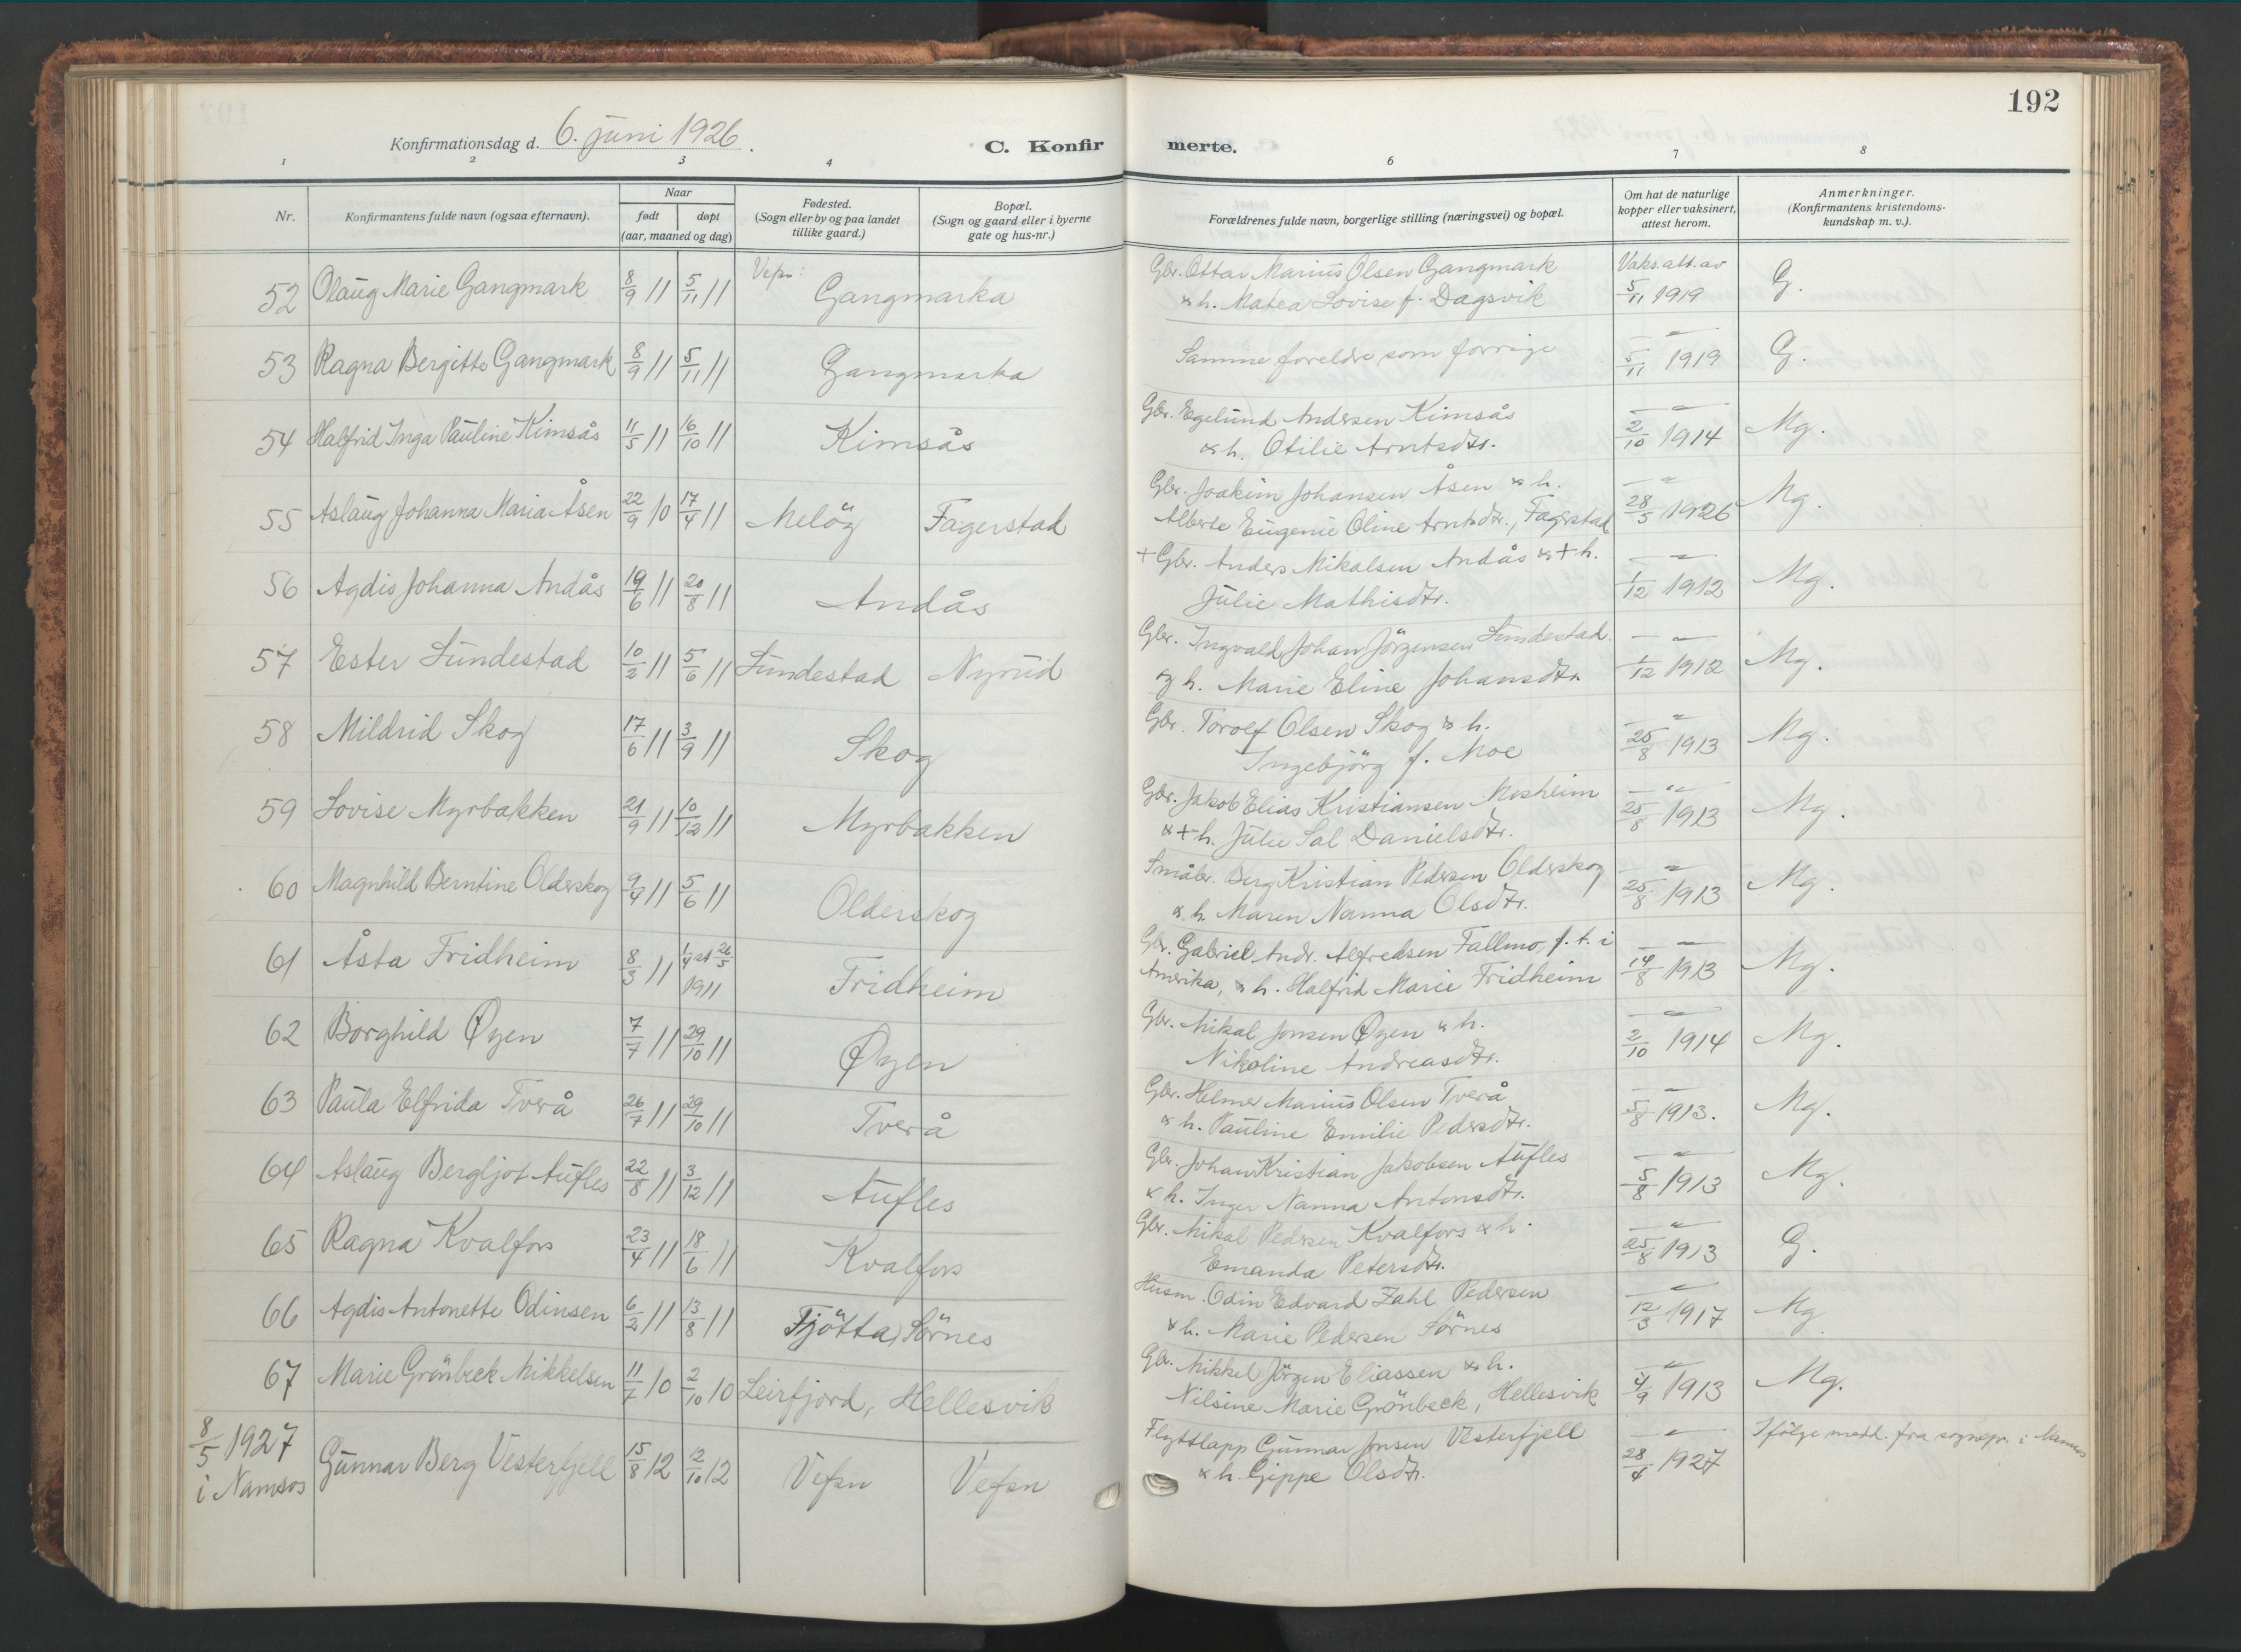 192
Konfirmationsdag d. 6. juni 1926.
C. Konfirmerte.
1 2 3 4 6 7 8
Nr.
Konfirmantens fulde navn (ogsaa efternavn).
Naar
født døpt
(aar, maaned og dag)
Fødested.
(Sogn eller by og paa landet
tillike gaard.)
Bopæl.
(Sogn og gaard eller i byerne
gate og hus-nr.)
Forældrenes fulde navn, borgerlige stilling (næringsvei) og bopæl.
Om hat de naturlige
kopper eller vaksinert,
attest herom.
Anmerkninger.
(Konfirmantens kristendoms-
kundskap m. v.).
52 Olaug Marie Gangmark 8/9 11 5/11 11 Vefsn: Gangmarka
Gbr. Ottar Marius Olsen Gangmark
& h. Matea Lovise f. Dagsvik
Vaks. att. av
5/11 1919 G.
53 Ragna Bergitte Gangmark 8/9 11 5/11 11 Gangmarka
Samme foreldre som forrige
— " — 5/11 1919 G.
54 Halfrid Inga Pauline Kimsås 11/5 11 16/10 11 Kimsås
Gbr. Egelund Andersen Kimsås
& h. Otilie Arntsdtr.
— " — 2/10 1914 Mg.
55 Aslaug Johanna Maria Åsen 22/9 10 17/4 11 Meløy Fagerstad
Gbr. Joakim Johansen Åsen & h.
Alberte Eugenie Oline Arntsdtr., Fagerstad
— " — 28/5 1926 Mg.
56 Agdis Johanna Andås 19/6 11 20/8 11 Andås
+ Gbr. Anders Mikalsen Andås & + h.
Julie Mathisdtr.
— " — 1/12 1912 Mg.
57 Ester Lundestad 10/2 11 5/6 11 Lundestad Nyrud
Gbr. Ingvald Johan Jörgensen Lundestad
og h. Marie Eline Johansdtr.
— " — 1/12 1912 Mg.
58 Mildrid Skog 17/6 11 3/9 11 Skog
Gbr. Torolf Olsen Skog & h.
Ingebjörg f. Moe
— " — 25/8 1913 Mg.
59 Lovise Myrbakken 21/9 11 10/12 11 Myrbakken
Gbr. Jakob Elias Kristiansen Mosheim
& + h. Julie Sal Danielsdtr.
— " — 25/8 1913 Mg.
60 Magnhild Berntine Olderskog 9/4 11 5/6 11 Olderskog
Småbr. Berg Kristian Pedersen Olderskog
& h. Maren Nanna Olsdtr.
— " — 25/8 1913 Mg.
61 Åsta Fridheim 8/3 11 1/4 st 26/5 1911 Fridheim
Gbr. Gabriel Andr. Alfredsen Fallmo, f. t. i
Amerika, & h. Halfrid Marie Fridheim
— " — 14/8 1913 Mg.
62 Borghild Øyen 7/7 11 29/10 11 Øyen
Gbr. Mikal Jonsen Øyen & h.
Nikoline Andreasdtr.
— " — 2/10 1914 Mg.
63 Paula Elfrida Tverå 26/7 11 29/10 11 Tverå
Gbr. Helmer Marius Olsen Tverå
& h. Pauline Emilie Pedersdtr.
— " — 5/8 1913. Mg.
64 Aslaug Bergljot Aufles 22/8 11 3/12 11 Aufles
Gbr. Johan Kristian Jakobsen Aufles
& h. Inger Nanna Antonsdtr.
— " — 5/8 1913 Mg.
65 Ragna Kvalfors 23/4 11 18/6 11 Kvalfors
Gbr. Mikal Pedersen Kvalfors & h.
Emanda Petersdtr.
— " — 25/8 1913 G.
66 Agdis Antonette Odinsen 6/2 11 13/8 11 Tjötta, Sörnes
Husm. Odin Edvard Zahl Pedersen
& h. Marie Pedersen Sörnes
— " — 12/3 1917 Mg
67 Marie Grönbeck Mikkelsen 11/7 10 2/10 10 Leirfjord, Hellesvik
Gbr. Mikkel Jörgen Eliassen & h.
Nilsine Marie Grönbeck, Hellesvik
— " — 4/9 1913 Mg.
8/5 1927
i Namsos
Gunnar Berg Vesterfjell 15/8 12 12/10 12 Vefsn Vefsn
Flyttlapp Gunnar Jonsen Vesterfjell
& h. Gippe Olsdtr.
— " — 28/4 1927
Ifölge medd. fra sognepr. i Namsos